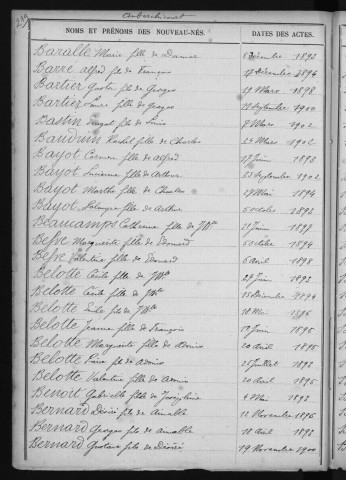 Auberchicourt
NOMS ET PRÉNOMS DES NOUVEAU-NÉS. DATES DES ACTES.
Baralle Marie fille de Décembre 1893
Barré Alfred fils de François 17 Décembre 1894
Bartier Gaston fils de Georges 19 Mars 1898
Bartier fille de Georges Septembre 1900
Bastin fils de Louis 8 Mars 1902
Bauduin Rachel fille de Charles 24 Mars 1902
Bayot fille de Alfred 17 Juin 1893
Bayot Lucienne fille de Arthur 23 Septembre 1902
Bayot Marthe fille de Charles 27 Mai 1894
Bayot fille de Arthur 5 octobre 1893
Beaucamps Catherine fille de 21 Juin 1897
Befve Marguerite fille de Edouard 6 octobre 1894
Befve Valentine fille de Edouard 6 avril 1898
Belotte Cécile fille de 29 Juin 1893
Belotte Cécile fille de 15 Décembre 1894
Belotte Emile fils de 18 Mai 1896
Belotte Jeanne fille de François 19 Juin 1896
Belotte Marguerite fille de 20 Avril 1895
Belotte fille de 25 Juillet 1893
Belotte Valentine fille de 20 Avril 1895
Benoit Gabrielle fille de Joséphine 4 Mai 1893
Bernard Désiré fils de Aimable 12 Novembre 1896
Bernard Georges fils de Aimable 18 Août 1893
Bernard Gustave fils de Désiré 19 Novembre 1900